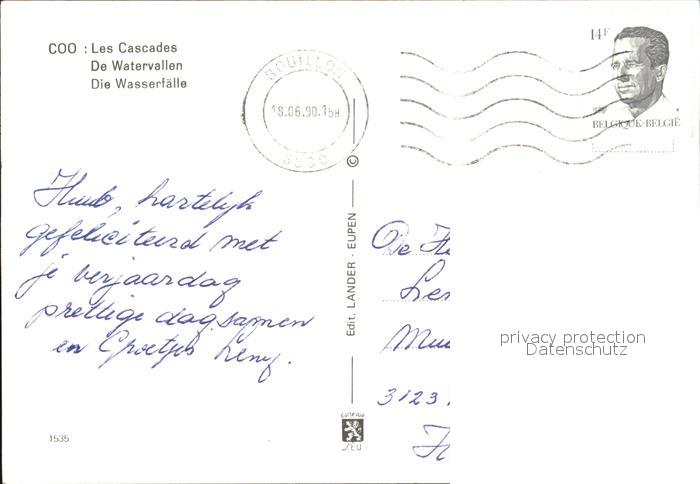 COO : Les Cascades
De Watervallen
Die Wasserfälle
BOUILLON
18.06.90.15H
6830
14F
BELGIQUE-BELGIË
Huub, hartelijk
gefeliciteerd met
je verjaardag
prettige dag samen
en Groetjes
©
Edit. LANDER - EUPEN
De He
Muu
3123
privacy protection
Datenschutz
1535